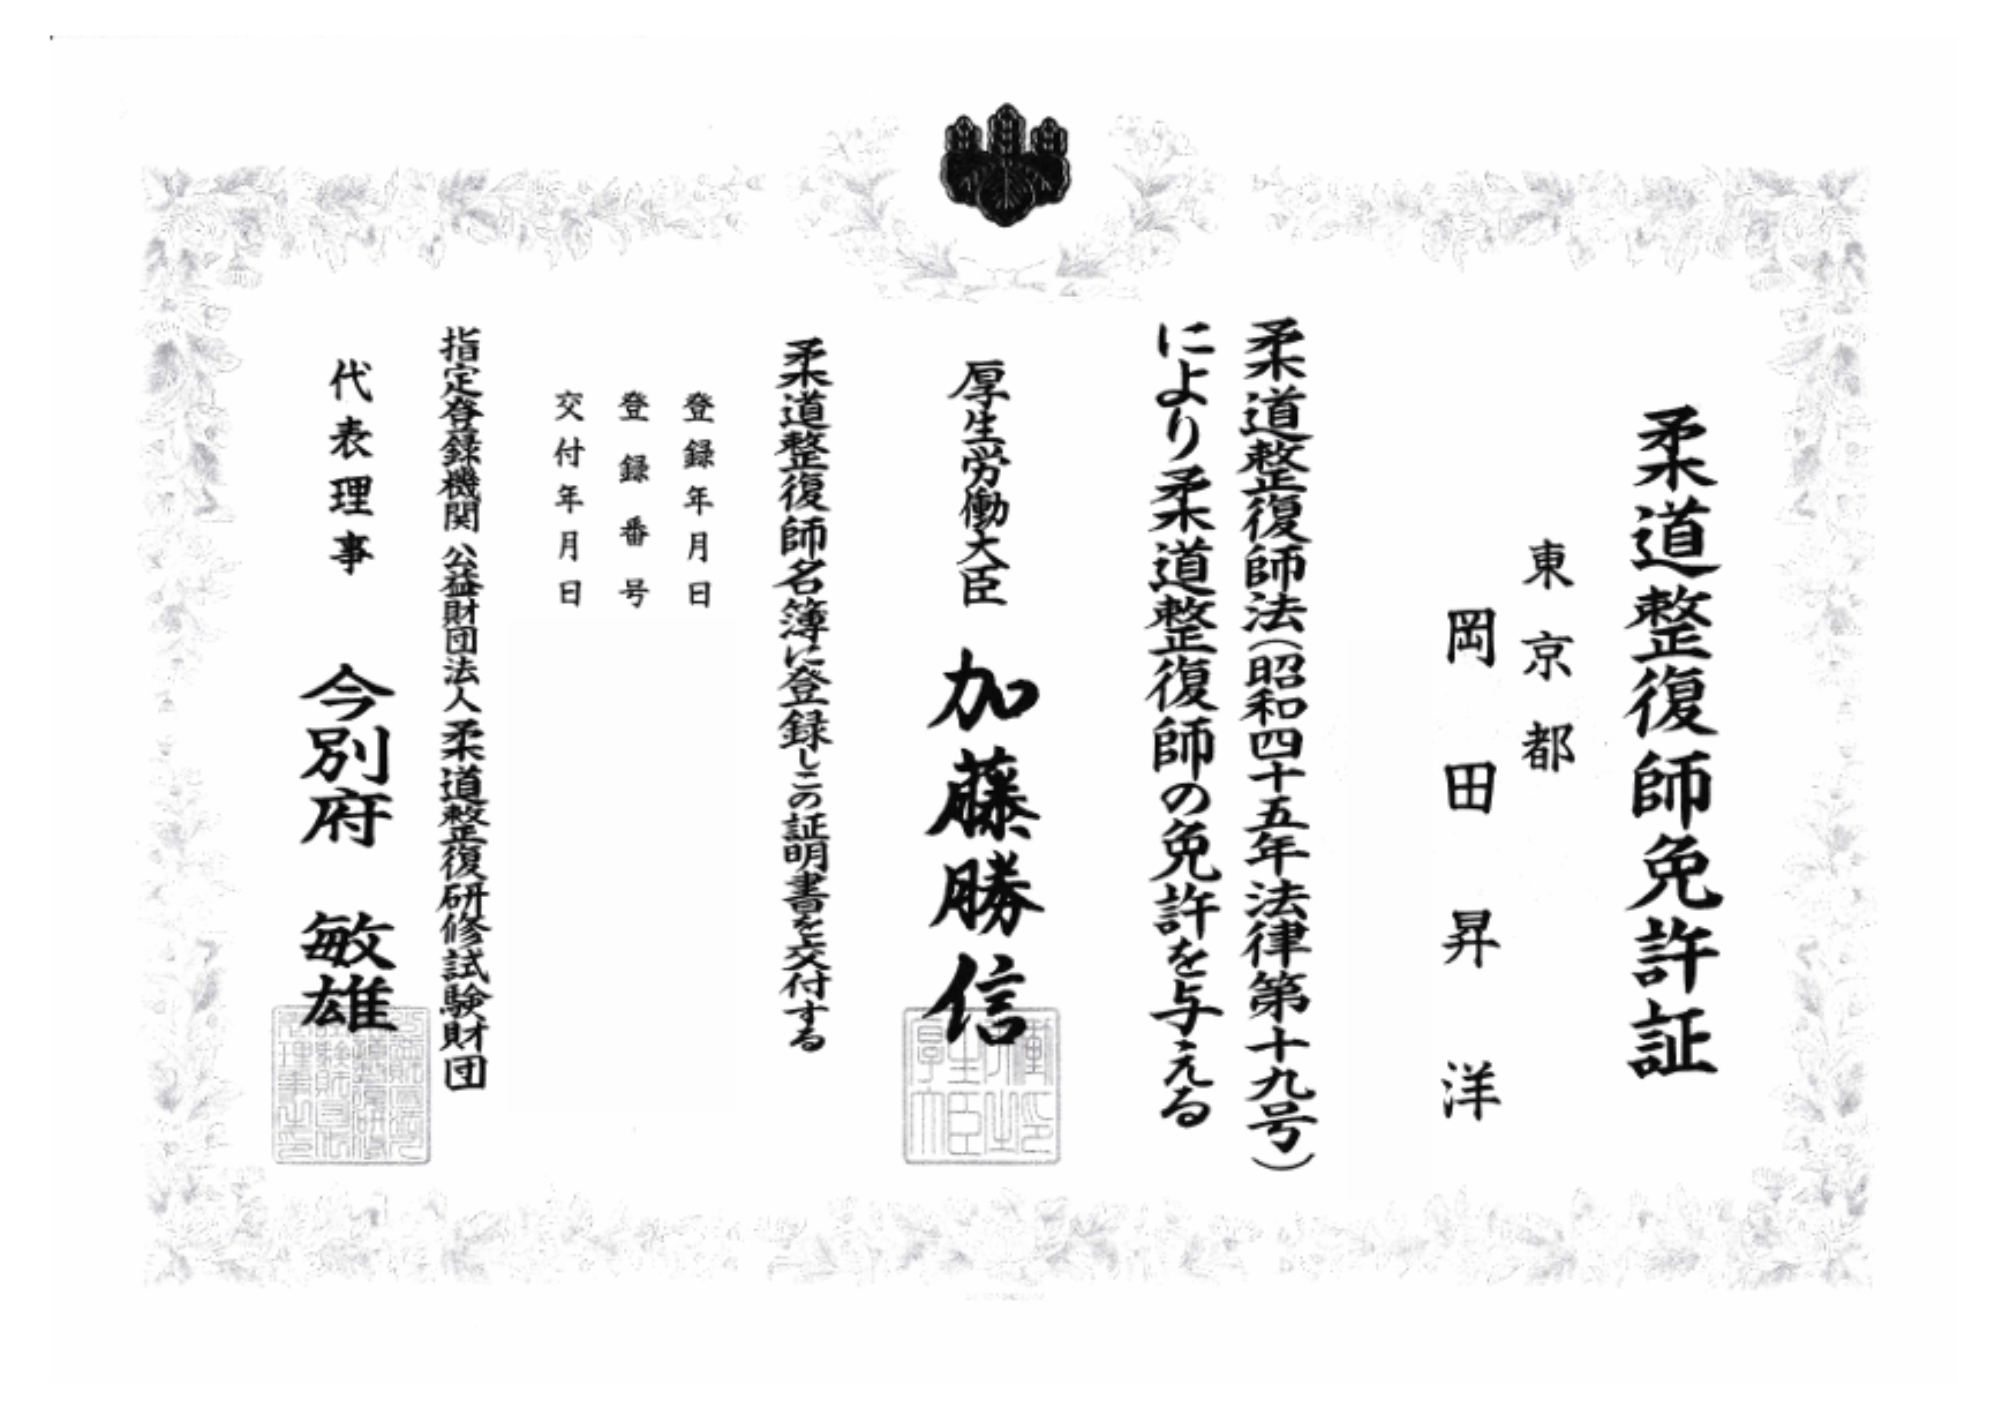 柔道整復師免許証
東京都
岡田昇洋
柔道整復師法(昭和四十五年法律第十九号)
により柔道整復師の免許を与える
厚生労働大臣 加藤勝信
柔道整復師名簿に登録しこの証明書を交付する
登録年月日
登録番号
交付年月日
指定登録機関 公益財団法人 柔道整復研修試験財団
代表理事 今別府 敏雄